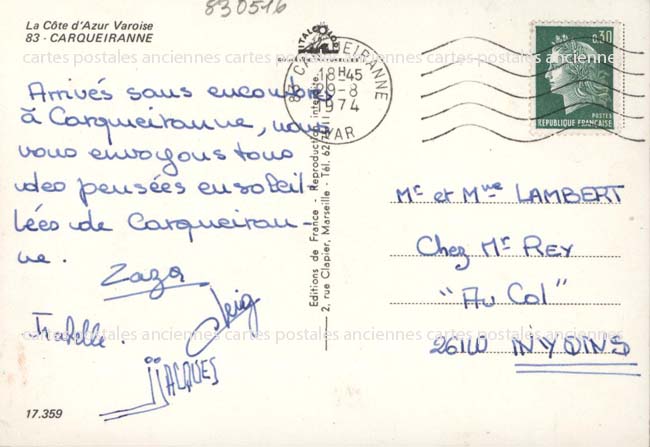 830516
La Côte d'Azur Varoise
83 - CARQUEIRANNE
cartes postales anciennes cartes postales anciennes cartes postales anciennes
Arrivés sans encombres
à Carqueiranne, nous
vous envoyons tous
des pensées ensoleil-
lées de Carqueiran-
ne.
Zaza
Isabelle.
JACQUES
17.359
Editions de France - Reproduction interdite.
2, rue Clapier, Marseille - Tél. 62
CAPITALE
83 CARQUEIRANNE
18H45
9-8
1974
VAR
0,30
POSTES
REPUBLIQUE FRANÇAISE
Mr et Mme LAMBERT
Chez Mr REY
"Au Col"
26110
cartes postales anciennes cartes postales anciennes cartes postales anciennes